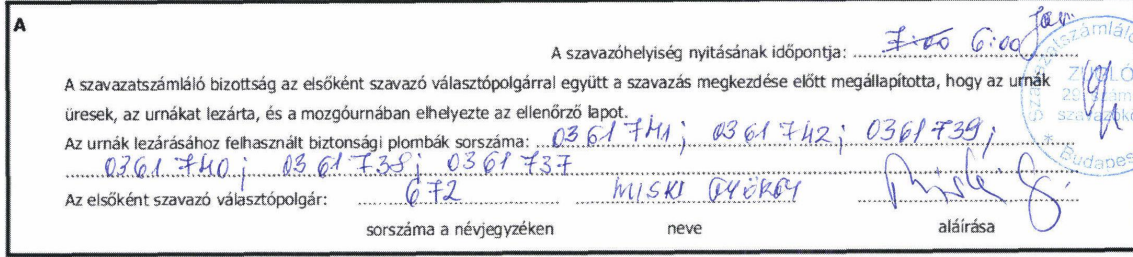 A
Jav.
A szavazóhelyiség nyitásának időpontja: 7:00 6:00
A szavazatszámláló bizottság az elsőként szavazó választópolgárral együtt a szavazás megkezdése előtt megállapította, hogy az urnák
üresek, az urnákat lezárta, és a mozgóurnában elhelyezte az ellenőrző lapot.
Az urnák lezárásához felhasznált biztonsági plombák sorszáma: 0361741; 0361742; 0361739;
0361740; 0361738; 0361737
Az elsőként szavazó választópolgár: 672 MISKI GYÖRGY
sorszáma a névjegyzéken neve aláírása